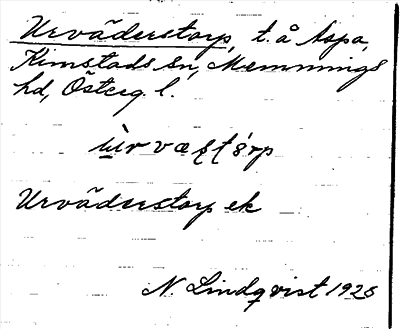 Urväderstorp, t. å Aspa,
Kimstads sn, Memmings
hd, Österg l.
Urväderstorp ek
N. Lindqvist 1925